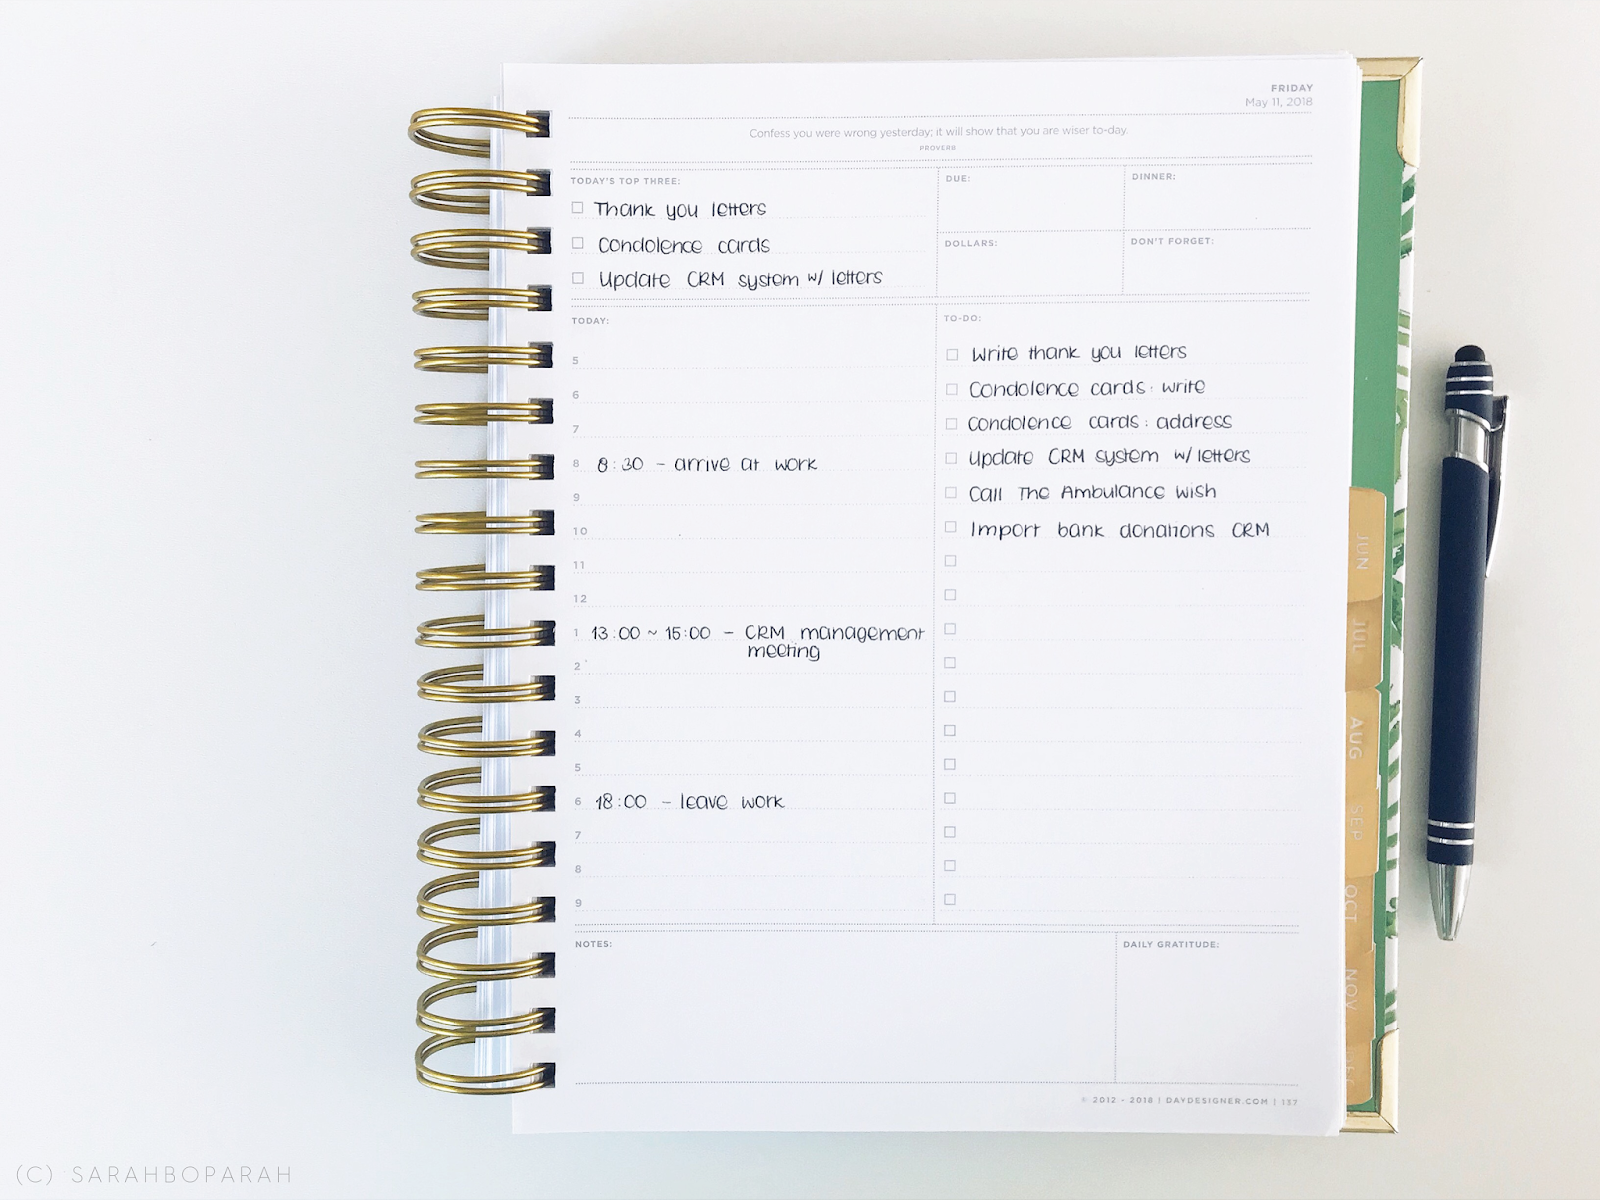 FRIDAY
May 11, 2018
Confess you were wrong yesterday; it will show that you are wiser to-day.
PROVERB
TODAY'S TOP THREE:
Thank you letters
Condolence cards
Update CRM system w/ letters
DUE:
DINNER:
DOLLARS:
DON'T FORGET:
TODAY:
5
6
7
8 8:30 - arrive at work
9
10
11
12
1 13:00 ~ 15:00 - CRM management
meeting
2
3
4
5
6 18:00 - leave work
7
8
9
TO-DO:
Write thank you letters
Condolence cards: write
Condolence cards: address
Update CRM system w/ letters
Call The Ambulance Wish
Import bank donations CRM
NOTES:
DAILY GRATITUDE:
© 2012 - 2018 | DAYDESIGNER.COM | 137
JUN
JUL
AUG
SEP
OCT
NOV
(C) SARAHBOPARAH